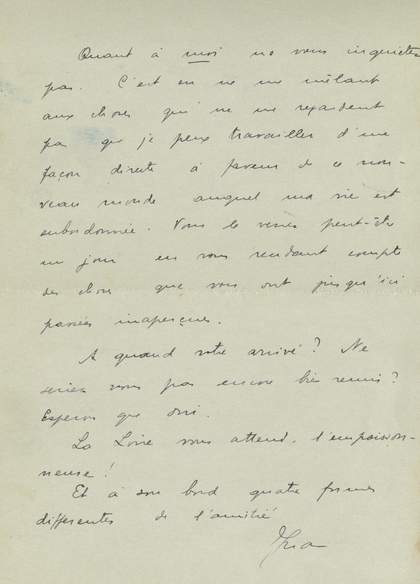 Quant à moi ne vous inquietez
pas. C'est en ne me mêlant
aux choses qui ne me regardent
pas que je peux travailler d'une
façon directe à faveur de ce nou-
veau monde auquel ma vie est
subordonnée. Vous le verez peut-être
un jour en vous rendant compte
des choses que vous ont jusqu'ici
passées inaperçues.
A quand votre arrivé? Ne
seriez vous pas encore bien remis?
Esperons que oui.
La Loire vous attend, l'empoisson-
neuse!
Et à son bord quatre formes
differentes de l'amitié